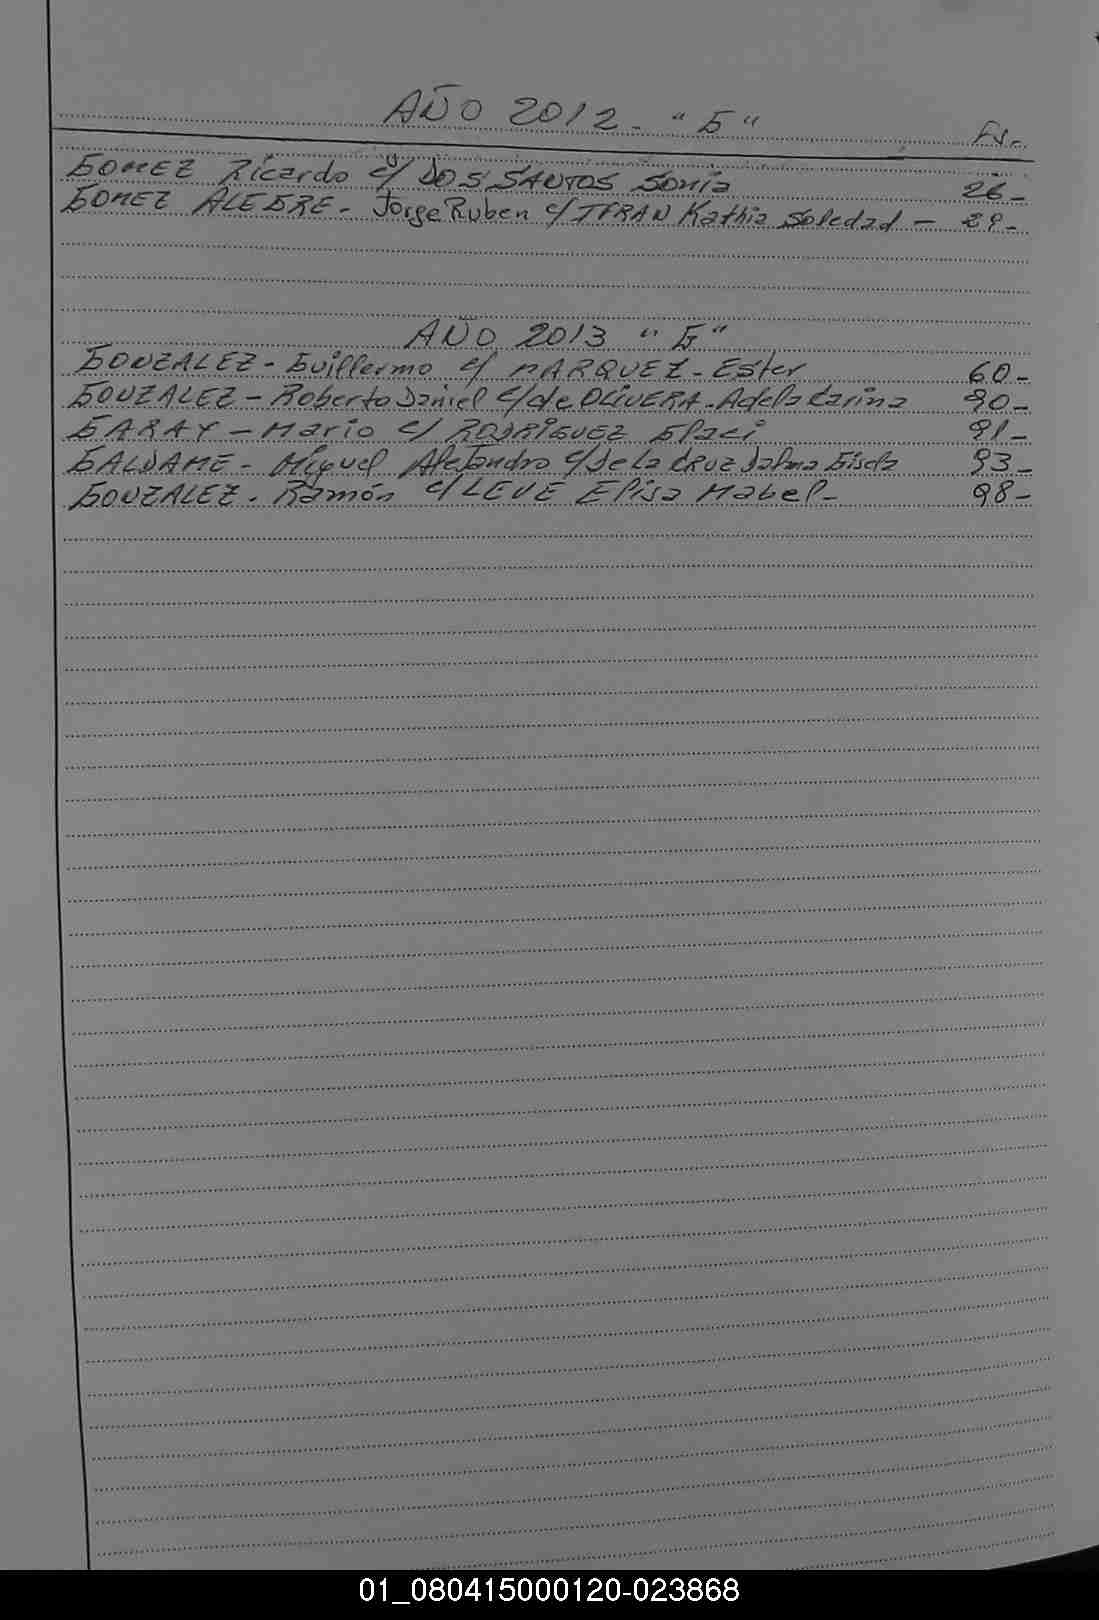 AÑO 2012 - "G"
Fs.-
GOMEZ Ricardo c/ DOS SANTOS Sonia 26-
GOMEZ ALEGRE - Jorge Ruben c/ TERAN Kathia Soledad - 29-
AÑO 2013 "G"
GONZALEZ - Guillermo c/ MARQUEZ - Ester 60-
GONZALEZ - Roberto Daniel c/ de OLIVERA - Adela Carina 90-
GARAY - Mario c/ RODRIGUEZ Glaci 91-
GALDAME - Miguel Alejandro c/ de la CRUZ Dalma Gisela 93-
GONZALEZ - Ramón c/ LEVE Elisa Mabel - 98-
01_080415000120-023868